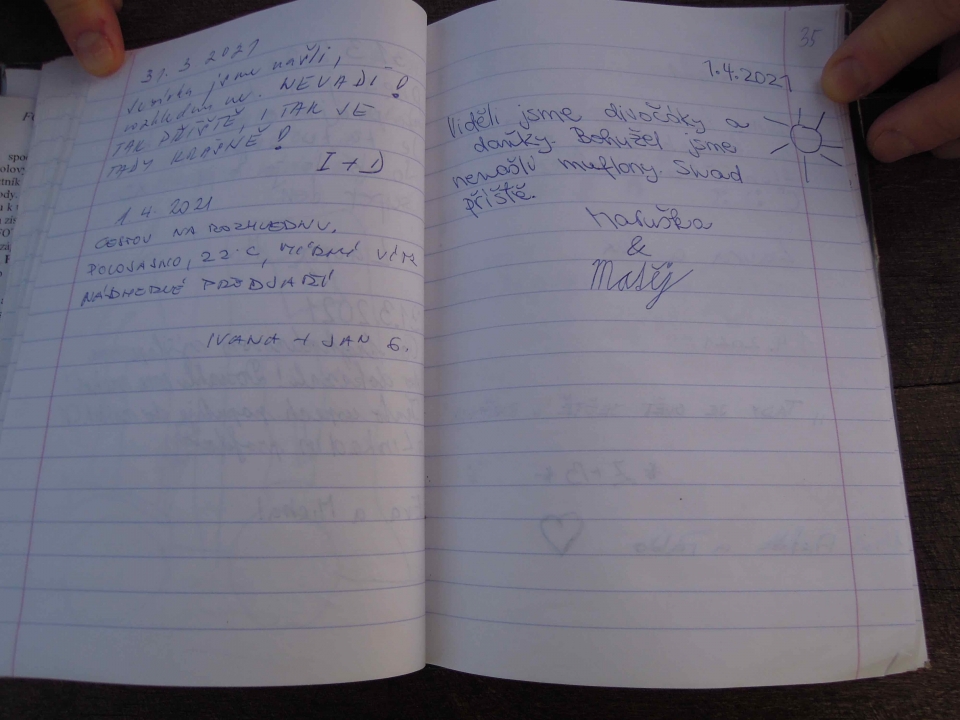 31. 3 2021
jsme našli,
rozhlednu ne. NEVADÍ!
TAK PŘÍŠTĚ, I TAK JE
TADY KRÁSNĚ!
I + D
1 4. 2021
CESTOU NA ROZHLEDNU.
POLOJASNO, 22°C, MÍRNÝ VÍTR
NÁDHERNÉ PŘEDJAŘÍ
IVANA + JAN G.
35
1.4.2021
Viděli jsme divočáky a
daňky. Bohužel jsme
nenašli muflony. Snad
příště.
Maruška
&
Matěj